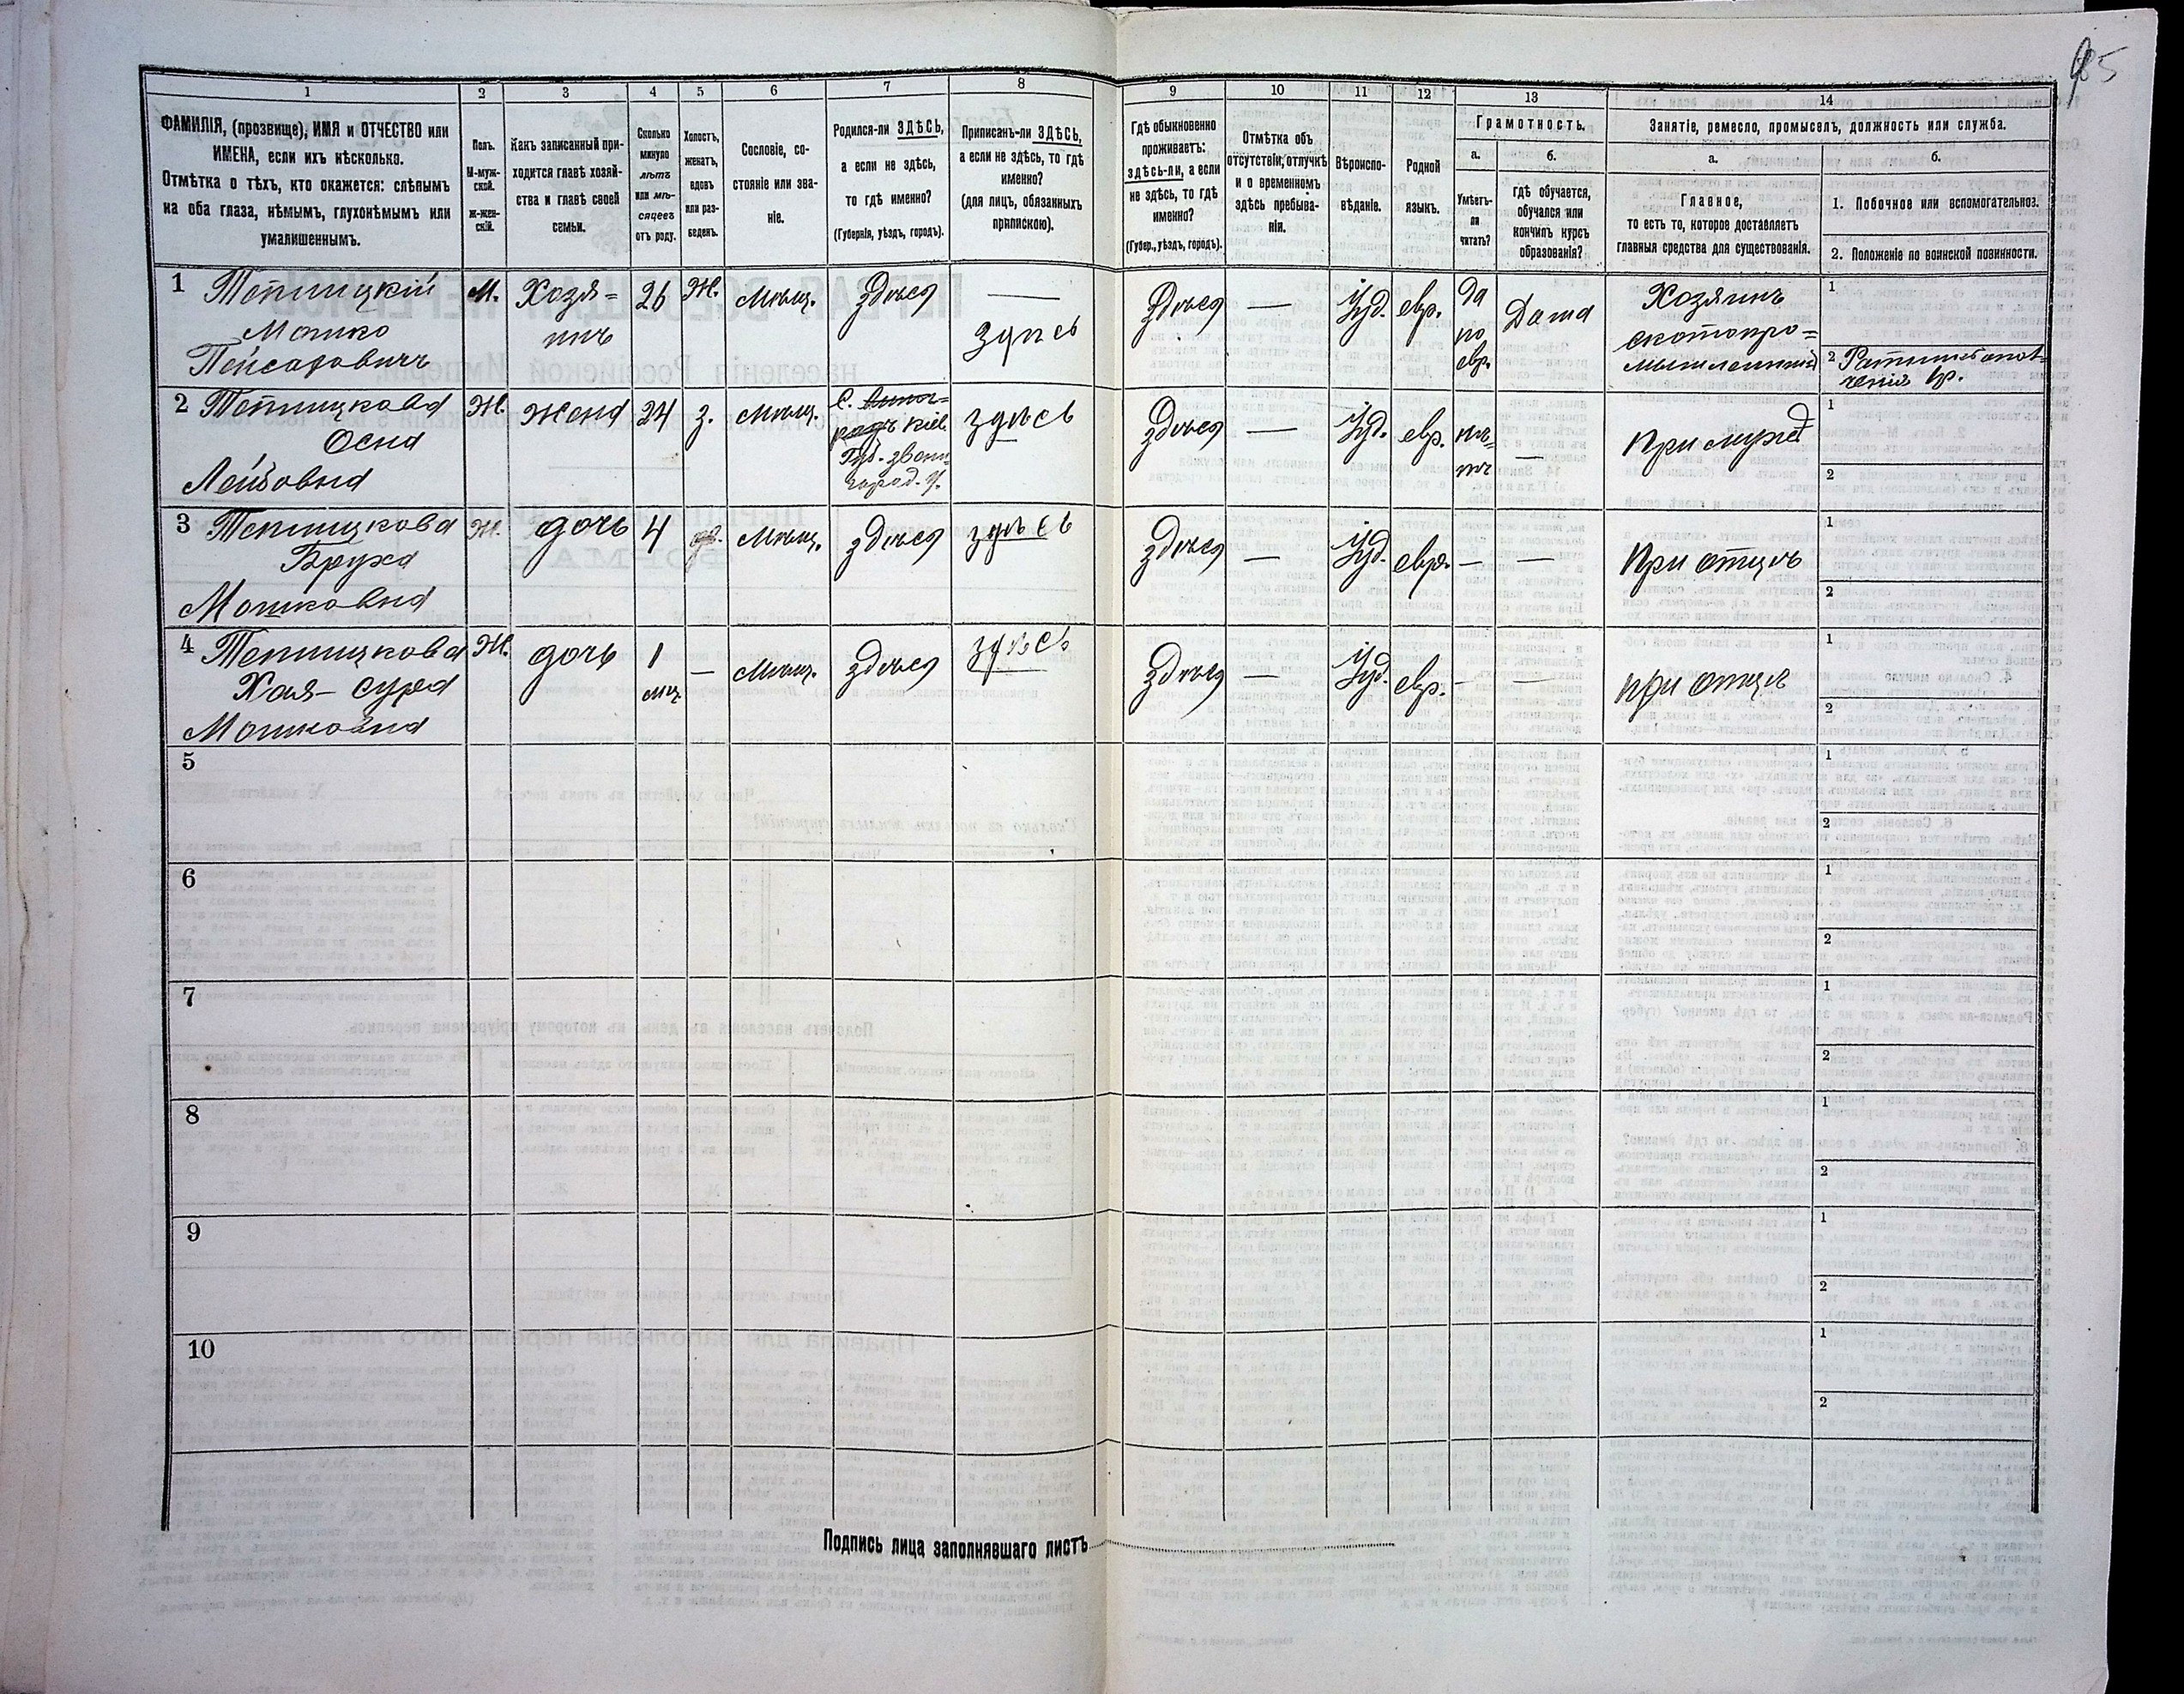 85
1 2 3 4 5 6 7 8 9 10 11 12 13 14
ФАМИЛІЯ, (прозвище), ИМЯ и ОТЧЕСТВО или
ИМЕНА, если ихъ нѣсколько.
Отмѣтка о тѣхъ, кто окажется: слѣпымъ
на оба глаза, нѣмымъ, глухонѣмымъ или
умалишеннымъ.
Полъ.
М-муж-
ской.
Ж-жен-
скій.
Какъ записанный при-
ходится главѣ хозяй-
ства и главѣ своей
семьи.
Сколько
минуло
лѣтъ
или мѣ-
сяцевъ
отъ роду.
Холостъ,
женатъ,
вдовъ
или раз-
веденъ.
Сословіе, со-
стояніе или зва-
ніе.
Родился-ли ЗДѢСЬ,
а если не здѣсь,
то гдѣ именно?
(Губернія, уѣздъ, городъ).
Приписанъ-ли ЗДѢСЬ,
а если не здѣсь, то гдѣ
именно?
(для лицъ, обязанныхъ
припискою).
Гдѣ обыкновенно
проживаетъ:
здѣсь-ли, а если
не здѣсь, то гдѣ
именно?
(Губер., уѣздъ, городъ).
Отмѣтка объ
отсутствіи, отлучкѣ
и о временномъ
здѣсь пребыва-
ніи.
Вѣроиспо-
вѣданіе.
Родной
языкъ.
Грамотность.
а.
Умѣетъ-
ли
читать?
б.
гдѣ обучается,
обучался или
кончилъ курсъ
образованія?
Занятіе, ремесло, промыселъ, должность или служба.
а.
Главное,
то есть то, которое доставляетъ
главныя средства для существованія.
б.
1. Побочное или вспомогательное.
2. Положеніе по воинской повинности.
1
Мошко
Пейсаховичъ
М.
Хозя=
инъ
26
Ж.
Мѣщ.
здѣся
—
здѣсь
здѣся
—
Іуд.
евр.
да
по
евр.
Дома
Хозяинъ
скотопро=
мышленный
1
2
2
Лейбовна
Ж.
Жена
24
з.
Мѣщ.
кіев.
Губ. звени-
город. у.
здѣсь
здѣся
—
Іуд.
евр.
нѣ=
тъ
—
При мужѣ
1
2
3
Бруха
Мошковна
Ж.
дочь
4
Мѣщ.
здѣся
здѣсь
здѣся
—
Іуд.
евр.
—
—
При отцѣ
1
2
4
Хая-Сура
Мошковна
Ж.
дочь
1
мц.
—
Мѣщ.
здѣся
здѣсь
здѣся
—
Іуд.
евр.
—
—
при отцѣ
1
2
5
1
2
6
1
2
7
1
2
8
1
2
9
1
2
10
1
2
Подпись лица заполнявшаго листъ